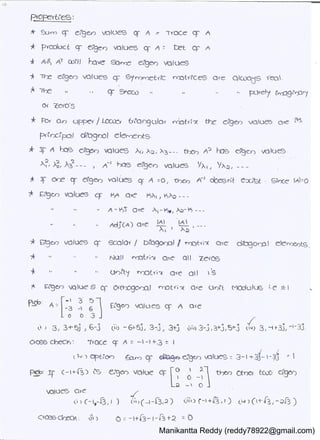 Properties:
* Sum of eigen values of A = Trace of A
* Product of eigen values of A : Det of A
* A&, A^T will have same eigen values
* The eigen values of Symmetric matrices are always real.
* The " of Skew " " - purely imaginary
or zero's
* For an upper / Lower triangular matrix the eigen values are its
principal diagonal elements
* If A has eigen values λ1, λ2, λ3--- then A² has eigen values
λ1², λ2², λ3² ---, A⁻¹ has eigen values 1/λ1, 1/λ2, ---
* If one of eigen values of A = 0, then A⁻¹ doesn't exist. Since |A|=0
* Eigen values of KA are Kλ1, Kλ2 ---
" - " A-KI are λ1-K, λ2-K ---
" - " Adj(A) are |A|/λ1, |A|/λ2, ---
* Eigen values of Scalar / Diagonal / matrix are diagonal elements.
* " " Null matrix are all zeros
* " " Unity matrix are all 1's
* Eigen values of orthogonal matrix are Unit Modulus i.e ±1
Pb: A = [-1 3 5 / -3 -1 6 / 0 0 3] Eigen values of A are
(i) 3, 3+5j, 6-j (ii) -6+5j, 3-j, 3+j (iii) 3-j, 3+j, 5+j (iv) 3, -1+3j, -1-3j
cross check: Trace of A = -1-1+3 = 1
(iv) option Sum of eigen values = 3-1+3j-1-3j = 1
Pb: If (-1+√3) is eigen value of [0 1 2 / 1 0 -1 / 2 -1 0] then other two eigen
values are
cross check: 0 = -1+√3-1-√3+2 = 0
Manikantta Reddy (reddy78922@gmail.com)